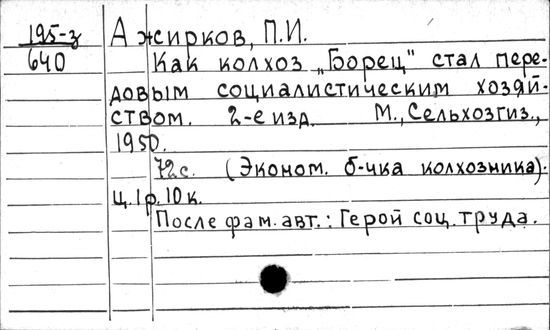 195-3 Ажирков, П.И.
640 Как колхоз „Борец" стал пере-
довым социалистическим хозяй-
ством. 2-е изд. М., Сельхозгиз.,
1950.
72 с. (Эконом. б-чка колхозника).
Ц. 1 р. 10 к.
После фам. авт.: Герой соц. труда.